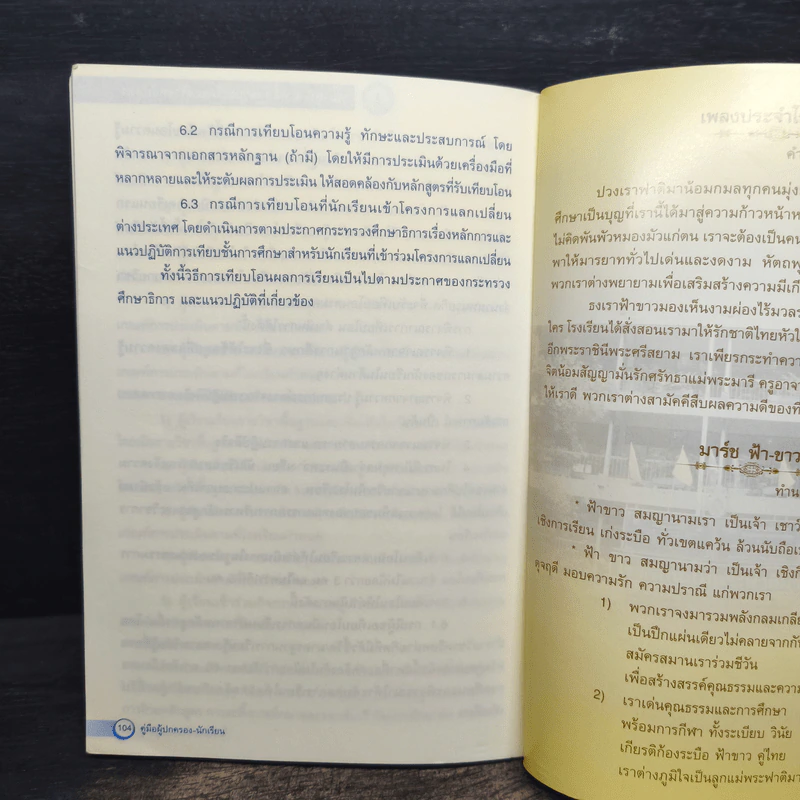 6.2 กรณีการเทียบโอนความรู้ ทักษะและประสบการณ์ โดย
พิจารณาจากเอกสารหลักฐาน (ถ้ามี) โดยให้มีการประเมินด้วยเครื่องมือที่
หลากหลายและให้ระดับผลการประเมิน ให้สอดคล้องกับหลักสูตรที่รับเทียบโอน
6.3 กรณีการเทียบโอนที่นักเรียนเข้าโครงการแลกเปลี่ยน
ต่างประเทศ โดยดำเนินการตามประกาศกระทรวงศึกษาธิการเรื่องหลักการและ
แนวปฏิบัติการเทียบชั้นการศึกษาสำหรับนักเรียนที่เข้าร่วมโครงการแลกเปลี่ยน
ทั้งนี้วิธีการเทียบโอนผลการเรียนเป็นไปตามประกาศของกระทรวง
ศึกษาธิการ และแนวปฏิบัติที่เกี่ยวข้อง
104 คู่มือผู้ปกครอง-นักเรียน
เพลงประจำ
ปวงเราฟาติมาน้อมกมลทุกคนมุ่ง
ศึกษาเป็นบุญที่เรานี้ได้มาสู่ความก้าวหน้า
ไม่คิดพันพัวหมองมัวแก่ตน เราจะต้องเป็นคน
พาให้มารยาททั่วไปเด่นและงดงาม หัตถ
พวกเราต่างพยายามเพื่อเสริมสร้างความมี
ธงเราฟ้าขาวมองเห็นงามผ่องไร้มวล
ใคร โรงเรียนได้สั่งสอนเรามาให้รักชาติไทย
อีกพระราชินีพระศรีสยาม เราเพียรกระทำความ
จิตน้อมสัญญามั่นรักศรัทธาแม่พระมารี ครู
ให้เราดี พวกเราต่างสามัคคีสืบผลความดีของ
มาร์ช ฟ้า-ขาว
ทำน
* ฟ้าขาว สมญานามเรา เป็นเจ้า
เชิงการเรียน เก่งระบือ ทั่วเขตแคว้น ล้วนนับถือ
* ฟ้า ขาว สมญานามว่า เป็นเจ้า
ดุจฤดี มอบความรัก ความปราณี แก่พวกเรา
1) พวกเราจงมารวมพลังกลมเกลีย
เป็นปึกแผ่นเดียวไม่คลายจากกั
สมัครสมานเราร่วมชีวัน
เพื่อสร้างสรรค์คุณธรรมและความ
2) เราเด่นคุณธรรมและการศึกษา
พร้อมการกีฬา ทั้งระเบียบ วินัย
เกียรติก้องระบือ ฟ้าขาว คู่ไทย
เราต่างภูมิใจเป็นลูกแม่พระฟาติมา